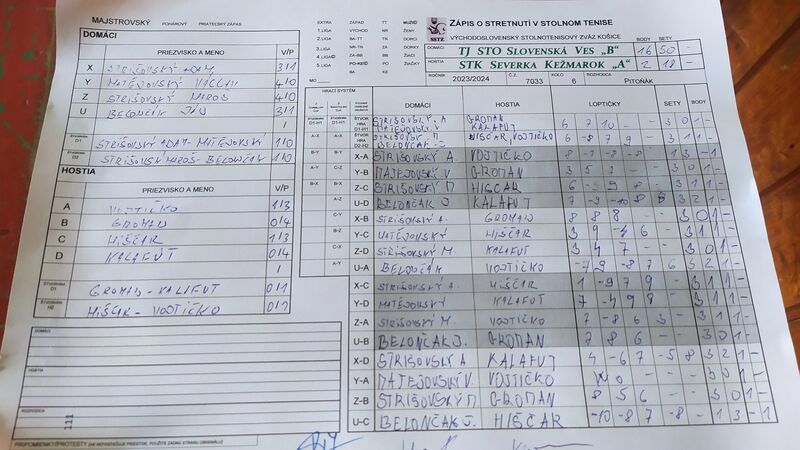 MAJSTROVSKÝ POHÁROVÝ PRIATEĽSKÝ ZÁPAS
DOMÁCI
PRIEZVISKO A MENO V/P
X STRIŠOVSKÝ ADAM 3/1
Y MATEJOVSKÝ 4/0
Z STRIŠOVSKÝ MIROS 4/0
U BELONČÁK JÁN 3/1
/
D1 STRIŠOVSKÝ ADAM-MATEJOVSKÝ 1/0
D2 STRIŠOVSKÝ MIROS-BELONČÁK 1/0
HOSTIA
PRIEZVISKO A MENO V/P
A VOJTIČKO 1/3
B GROMAN 0/4
C HIŠČAR 1/3
D KALAFUT 0/4
/
D1 GROMAN-KALAFUT 0/1
H2 HIŠČAR-VOJTIČKO 0/1
DOMÁCI
HOSTIA
ROZHODCA
111
PRIPOMIENKY/PROTESTY
EXTRA ZÁPAD TT MUŽI
1.LIGA VÝCHOD NR ŽENY
2.LIGA BA-TT TN DORCI
3.LIGA NR-TN ZA DORKY
4.LIGA ZA-BB BB ŽIACI
5.LIGA PO-KE KE ŽIAČKY
BA PO
KE
MO
SSTZ
ZÁPIS O STRETNUTÍ V STOLNOM TENISE
VÝCHODOSLOVENSKÝ STOLNOTENISOVÝ ZVÄZ KOŠICE
BODY SETY
DOMÁCI TJ STO SLOVENSKÁ VES „B" 16 50 -
HOSTIA STK SEVERKA KEŽMAROK „A" 2 18 -
ROČNÍK 2023/2024 Č.Z. 7033 KOLO 6 ROZHODCA PITOŇÁK
HRACÍ SYSTÉM
DOMÁCI HOSTIA LOPTIČKY SETY BODY
ŠTVORHRA D1-H1 STRIŠOVSKÝ A GROMAN
MATEJOVSKÝ KALAFUT 6 7 10 - - 3 0 1 -
ŠTVORHRA D2-H2 STRIŠOVSKÝ M HIŠČAR, VOJTIČKO
BELONČÁK J. 6 -8 7 9 - 3 1 1 -
X-A STRIŠOVSKÝ A. VOJTIČKO 1 3 - 1
Y-B MATEJOVSKÝ V. GROMAN 3 5 - -
Z-C STRIŠOVSKÝ M HIŠČAR 3 1 1 -
U-D BELONČÁK J KALAFUT 7 -9 -10 8 3 2 1 -
X-B STRIŠOVSKÝ A. GROMAN 8 8 8 - - 3 0 1 -
Y-C MATEJOVSKÝ HIŠČAR 3 9 -4 6 - 3 1 1 -
Z-D STRIŠOVSKÝ M. KALAFUT 3 4 7 - - 3 0 1 -
U-A BELONČÁK VOJTIČKO 9 -8 7 6 3 2 1 -
X-C STRIŠOVSKÝ A. HIŠČAR 1 -9 7 9 - 3 1 1 -
Y-D MATEJOVSKÝ KALAFUT 7 -4 9 8 - 3 1 1 -
Z-A STRIŠOVSKÝ M. VOJTIČKO 7 -8 6 3 - 3 1 1 -
U-B BELONČÁK J. GROMAN 7 8 6 - - 3 0 1 -
X-D STRIŠOVSKÝ A KALAFUT 4 -6 7 -5 8 3 2 1 -
Y-A MATEJOVSKÝ V. VOJTIČKO - - - 3 0 1 -
Z-B STRIŠOVSKÝ M GROMAN 8 5 6 - - 3 0 1 -
U-C BELONČÁK J. HIŠČAR -10 -8 7 -8 - 1 3 - 1